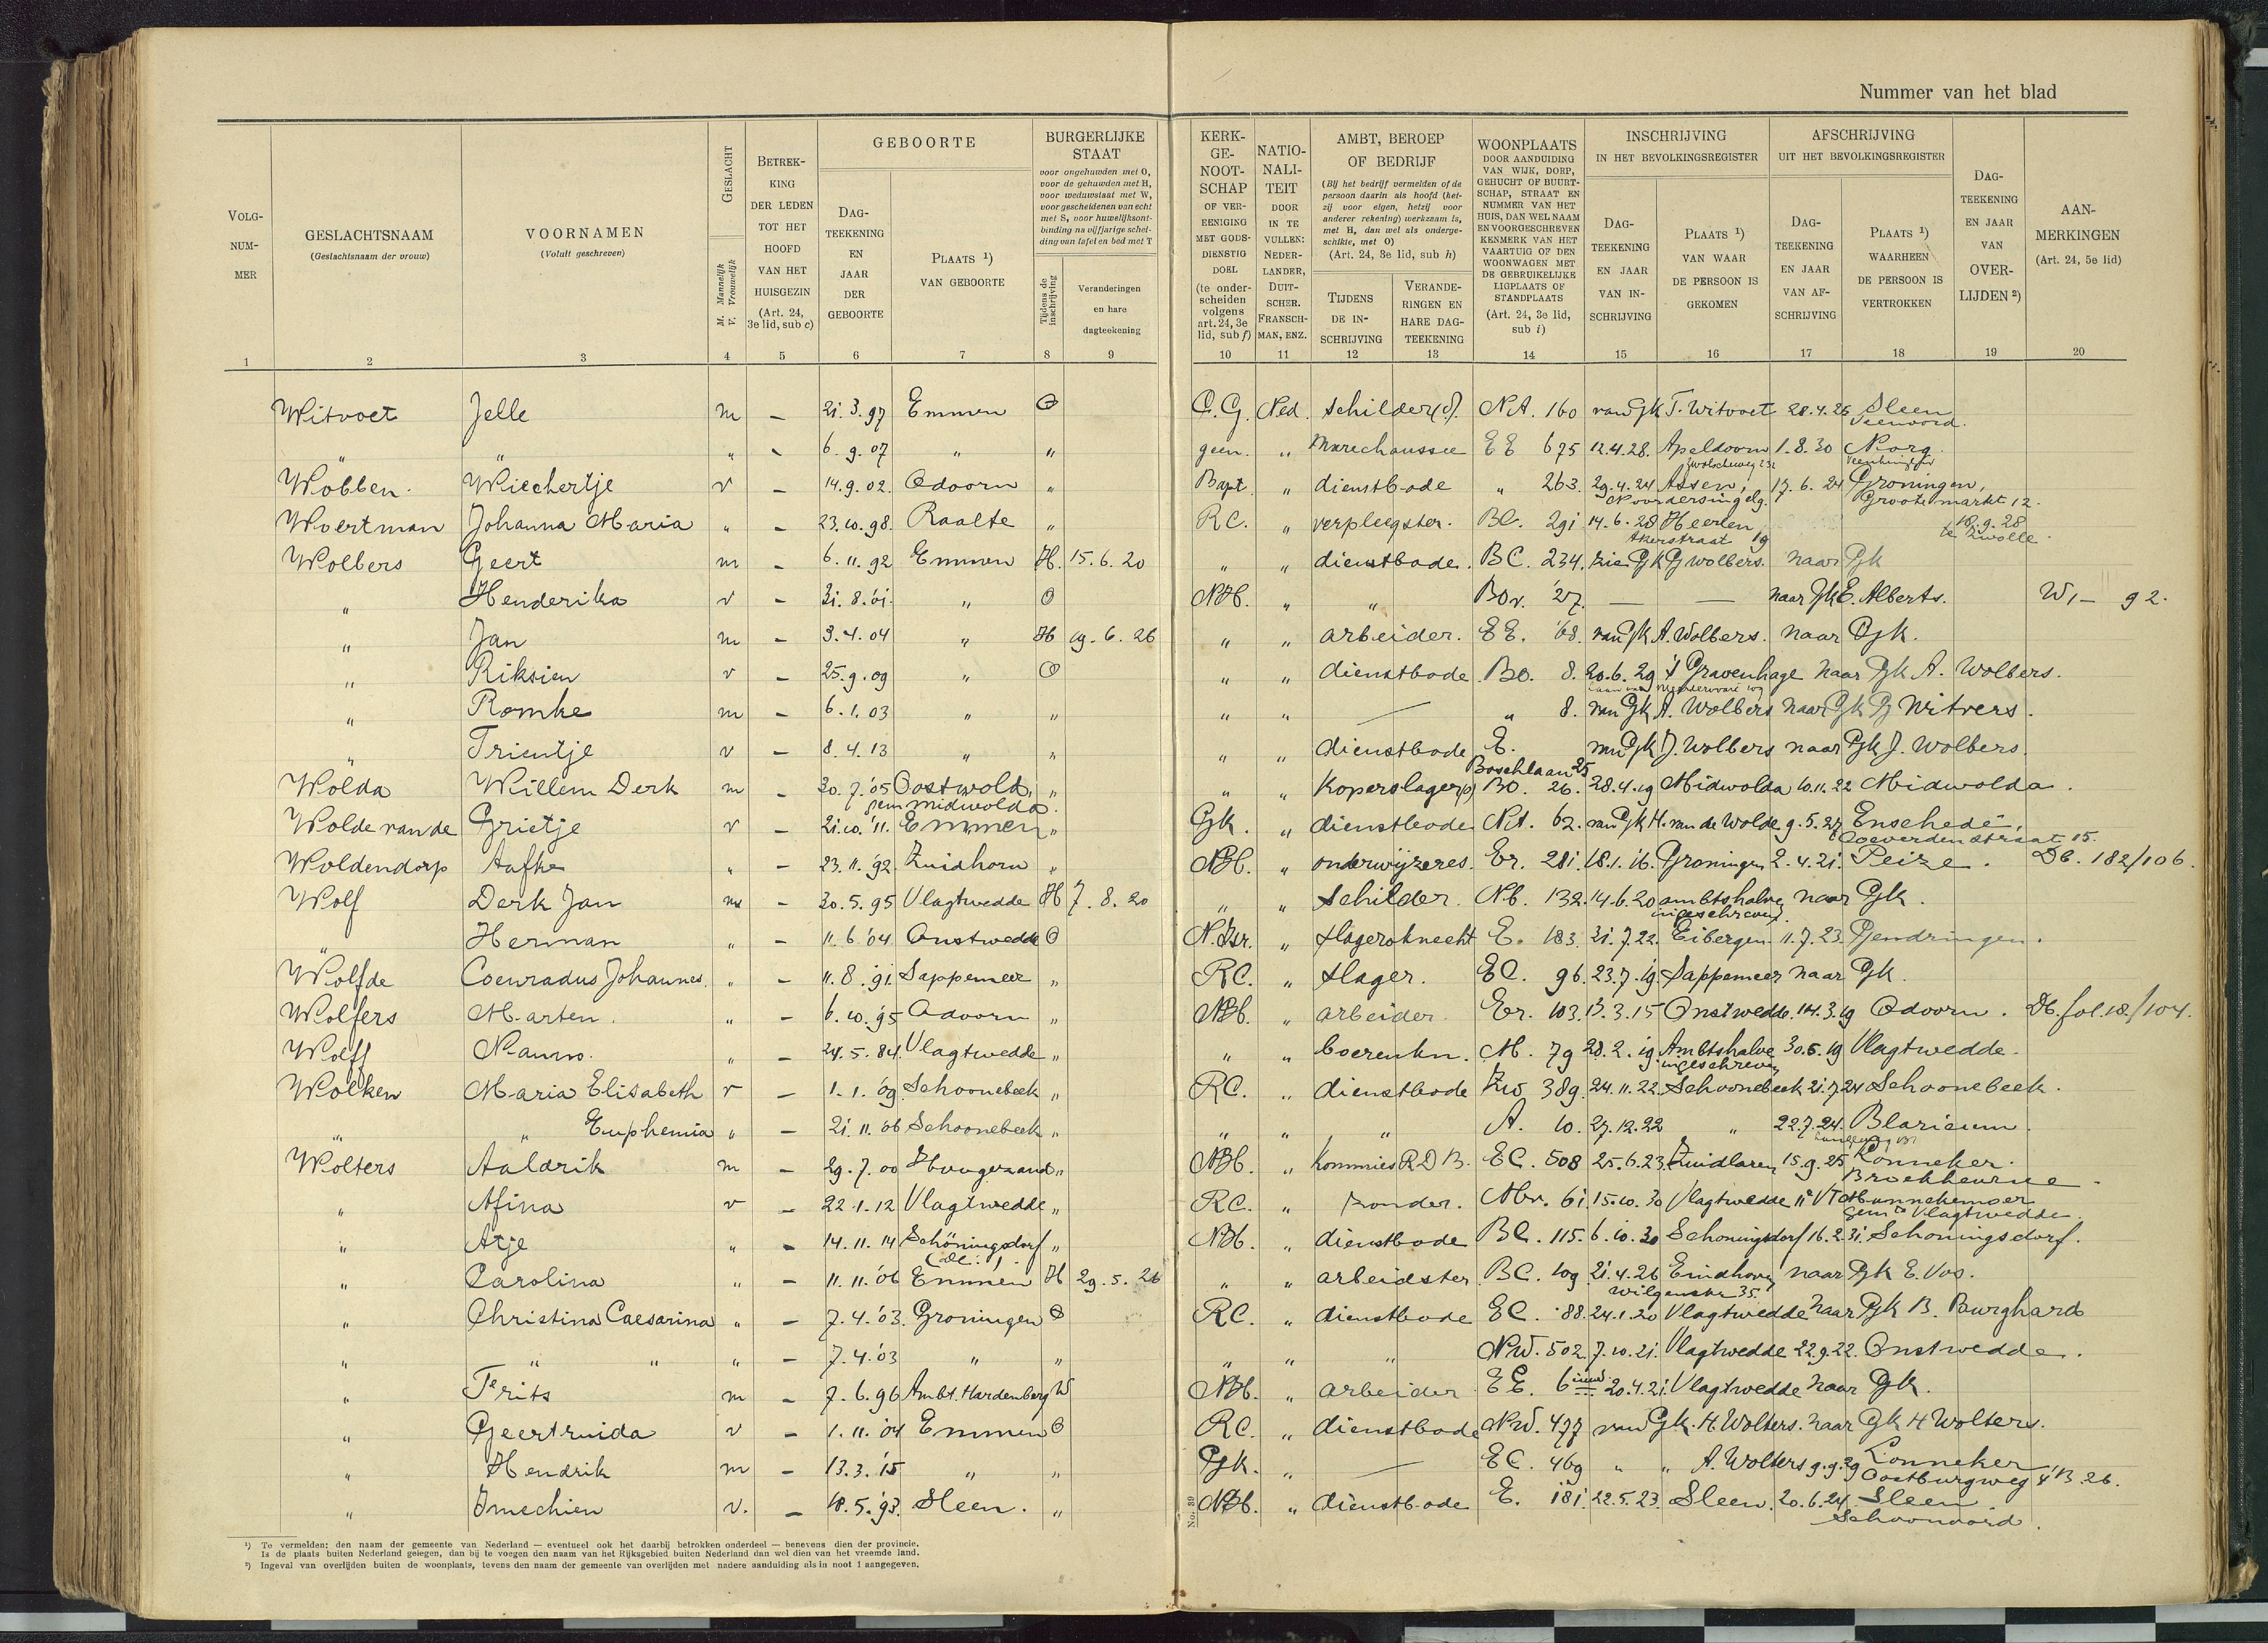 Nummer van het blad
VOLG-NUM-MER
GESLACHTSNAAM (Geslachtsnaam der vrouw)
VOORNAMEN (Voluit geschreven)
GESLACHT M. Mannelijk V. Vrouwelijk
BETREK-KING DER LEDEN TOT HET HOOFD VAN HET HUISGEZIN (Art. 24, 3e lid, sub c)
GEBOORTE
DAG-TEEKENING EN JAAR DER GEBOORTE
PLAATS ¹) VAN GEBOORTE
BURGERLIJKE STAAT
voor ongehuwden met O, voor de gehuwden met H, voor weduwstaat met W, voor gescheidenen van echt met S, voor huwelijksont-binding na vijfjarige schei-ding van tafel en bed met T
Tijdens de inschrijving
Veranderingen en hare dagteekening
KERK-GE-NOOT-SCHAP OF VER-EENIGING MET GODS-DIENSTIG DOEL (te onder-scheiden volgens art. 24, 3e lid, sub f)
NATIO-NALI-TEIT DOOR IN TE VULLEN: NEDER-LANDER, DUIT-SCHER, FRANSCH-MAN, ENZ.
AMBT, BEROEP OF BEDRIJF
(Bij het bedrijf vermelden of de persoon daarin als hoofd (het-zij voor eigen, hetzij voor anderer rekening) werkzaam is, met H, dan wel als onderge-schikte, met O) (Art. 24, 3e lid, sub h)
TIJDENS DE IN-SCHRIJVING
VERANDE-RINGEN EN HARE DAG-TEEKENING
WOONPLAATS DOOR AANDUIDING VAN WIJK, DORP, GEHUCHT OF BUURT-SCHAP, STRAAT EN NUMMER VAN HET HUIS, DAN WEL NAAM EN VOORGESCHREVEN KENMERK VAN HET VAARTUIG OF DEN WOONWAGEN MET DE GEBRUIKELIJKE LIGPLAATS OF STANDPLAATS (Art. 24, 3e lid, sub i)
INSCHRIJVING IN HET BEVOLKINGSREGISTER
DAG-TEEKENING EN JAAR VAN IN-SCHRIJVING
PLAATS ¹) VAN WAAR DE PERSOON IS GEKOMEN
AFSCHRIJVING UIT HET BEVOLKINGSREGISTER
DAG-TEEKENING EN JAAR VAN AF-SCHRIJVING
PLAATS ¹) WAARHEEN DE PERSOON IS VERTROKKEN
DAG-TEEKENING EN JAAR VAN OVER-LIJDEN ²)
AAN-MERKINGEN (Art. 24, 5e lid)
1 2 3 4 5 6 7 8 9 10 11 12 13 14 15 16 17 18 19 20
Witvoet Jelle m – 21.3.97 Emmen O C.G. Ned. schilder (o). NA. 160 van Gk T. Witvoet 28.4.26 Sleen
Veenoord.
" " " - 6.9.07 " " geen. " Marechaussee EE 675 12.4.28. Apeldoorn 1.8.30 Norg
Wöbben. Wiechertje v – 14.9.02. Odoorn " Bapt. " dienstbode " 263. 29.4.24 Assen, 17.6.24 Groningen,
Noordersingel Groote markt 12.
Woertman Johanna Maria " – 23.10.98. Raalte " RC. " verpleegster. BC. 291 14.6.28 Heerlen 18.9.28
Akerstraat 19 te Zwolle.
Wolbers Geert m – 6.11.92 Emmen H. 15.6.20 " " dienstbode. BC. 234. zie Gk G Wolbers. naar Gk
" Henderika v – 31.8.'01. " O NH. " " Bov. 27. — — naar Gk E. Alberts. W, – 92.
" Jan m – 3.4.04 " H 19.6.26 " " arbeider. EE. 68. van Gk A. Wolbers. naar Gk.
" Riksien v – 25.9.09 " O " " dienstbode Bo. 8. 20.6.29 's Gravenhage naar Gk A. Wolbers.
" Romke m – 6.1.03 " " " " — " 8. van Gk A. Wolbers naar Gk G Witvers.
" Trientje v – 8.4.13 " " " " dienstbode E. van Gk J. Wolbers naar Gk J. Wolbers.
Boschlaan 25
Wolda Willem Derk m – 30.7.'05 Oostwold, " " " Koperslager (o) BO. 26. 28.4.19 Midwolda 10.11.22 Midwolda.
gem midwolda.
Wolde van de Grietje v – 21.10.'11. Emmen " Gk. " dienstbode NA. 62. van Gk H. van de Wolde 9.5.27 Enschedé,
Coeverdenstraat 15.
Woldendorp Aafke " – 23.11.'92. Zuidhorn " NH. " onderwijzeres. Er. 281. 18.1.16. Groningen 2.4.21. Peize. Db. 182/106.
Wolf Derk Jan m – 30.5.95 Vlagtwedde H 7.8.20 " " Schilder. Nb. 132. 14.6.20 ambtshalve naar Gk.
ingeschreven
" Herman " – 11.6.'04 Onstwedde O N.Isr. " slagersknecht E. 183. 31.7.22. Eibergen 11.7.23. Gendringen.
Wolfde Coenradus Johannes. " – 11.8.'91. Sappemeer " RC. " slager. EC. 96. 23.7.19. Sappemeer naar Gk.
Wolfers Marten. " – 6.10.'95 Odoorn " NH. " arbeider. Er. 103. 13.3.15 Onstwedde. 14.3.19 Odoorn. Db. fol. 18/104.
Wolff Nanno. " – 24.5.84. Vlagtwedde " " " boerenkn. M. 79 28.2.19. Ambtshalve 30.5.19 Vlagtwedde.
ingeschreven
Wolken Maria Elisabeth v – 1.1.'09. Schoonebeek " RC. " dienstbode Zw 389. 24.11.22. Schoonebeek 21.7.24 Schoonebeek.
" " Euphemia " – 21.11.'06 Schoonebeek " " " " A. 10. 27.12.22 " 22.7.24. Blaricum.
Wolters Aaldrik m – 29.7.00 Hoogezand " NH. " Kommies R D B. EC. 508 25.6.23. Zuidlaren 15.9.25 Lonneker.
Broekheurne.
" Afina v – 22.1.12 Vlagtwedde " RC. " zonder. Mbv. 61. 15.10.30 Vlagtwedde Munnekemoer
gemte Vlagtwedde.
" Atje " – 14.11.14 Schöningsdorf " NH. " dienstbode BC. 115. 6.10.30 Schoningsdorf 16.2.31. Schoningsdorf.
" Carolina " – 11.11.'06 Emmen H 29.5.26 " " arbeidster BC. 109 21.4.26 Eindhoven naar Gk E. Vos.
Wilgenstr 35.
" Christina Caesarina " – 7.4.'03. Groningen O RC. " dienstbode EC. 88. 24.1.20 Vlagtwedde naar Gk B. Burghard
" " " " – 7.4.'03 " " " " " NW. 502 7.10.21. Vlagtwedde 22.9.22. Onstwedde.
" Frits m – 7.6.96 Ambt. Hardenberg W NH. " arbeider EE. 6 20.4.21. Vlagtwedde naar Gk.
" Geertruida v – 1.11.'04 Emmen O RC. " dienstbode NW. 477 van Gk. H. Wolters. naar Gk H Wolters.
" Hendrik m – 13.3.'15 " " Gk. " — EC. 469 " " A. Wolters 9.9.29 Lonneker
Oostburgweg 4 B 26.
" Imechien v. – 18.5.'93. Sleen. " NH. " dienstbode E. 181. 22.5.23. Sleen. 20.6.24. Sleen.
Schoonoord.
No. 39
¹) Te vermelden: den naam der gemeente van Nederland — eventueel ook het daarbij betrokken onderdeel — benevens dien der provincie.
Is de plaats buiten Nederland gelegen, dan bij te voegen den naam van het Rijksgebied buiten Nederland dan wel dien van het vreemde land.
²) Ingeval van overlijden buiten de woonplaats, tevens den naam der gemeente van overlijden met nadere aanduiding als in noot 1 aangegeven.